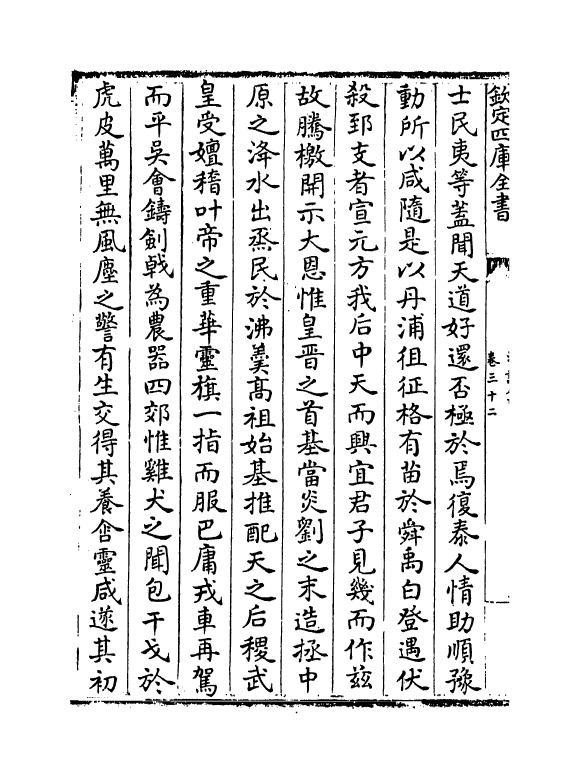 欽定四庫全書
卷三十二
士民夷等蓋聞天道好還否極於焉復泰人情助順豫
動所以咸隨是以丹浦徂征格有苗於舜禹白登遇伏
殺郅支者宣元方我后中天而興宜君子見幾而作茲
故騰檄開示大恩惟皇晉之首基當炎劉之末造拯中
原之洚水出烝民於沸羮髙祖始基推配天之后稷武
皇受嬗稽叶帝之重華靈旗一指而服巴庸戎車再駕
而平吳會鑄劍㦸為農器四郊惟雞犬之聞包干戈於
虎皮萬里無風塵之警有生交得其養含靈咸遂其初